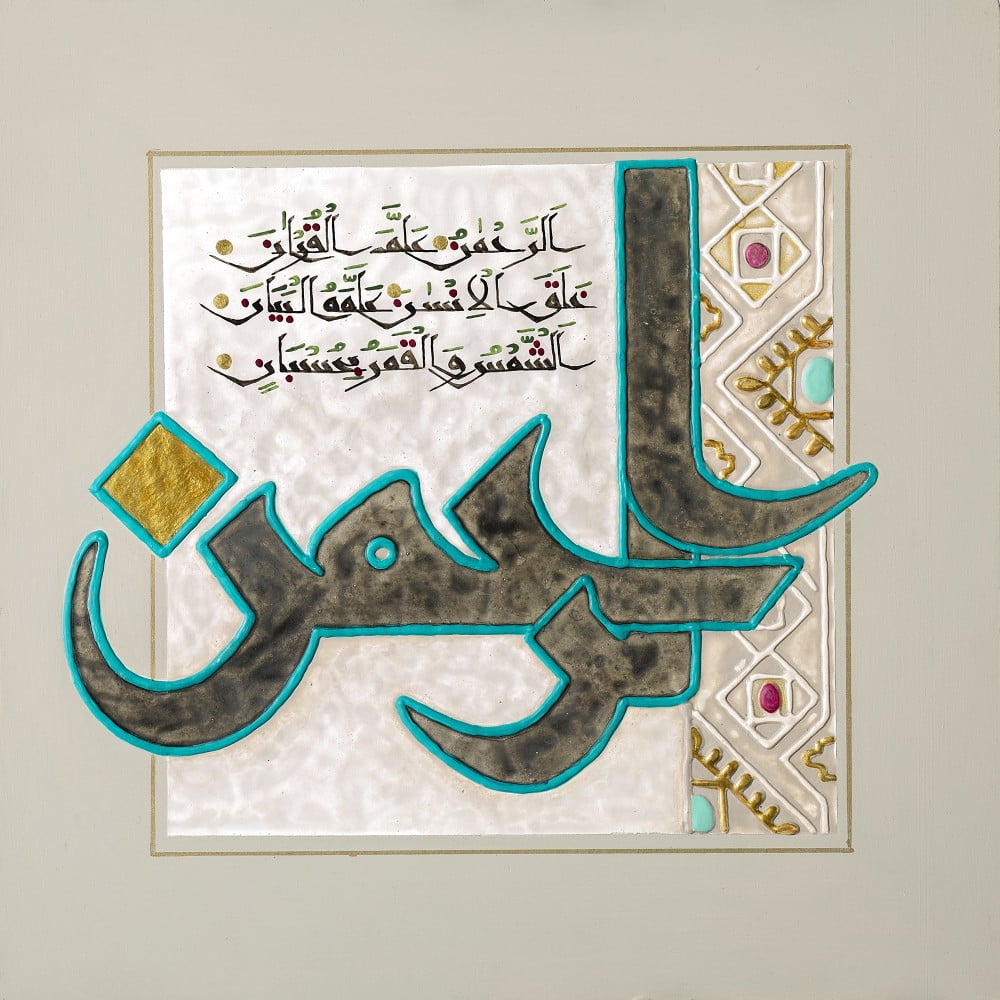 اَلرَّحْمٰنُ عَلَّمَ الْقُرْاٰنَ
خَلَقَ الْاِنْسٰنَ عَلَّمَهُ الْبَيَانَ
اَلشَّمْسُ وَالْقَمَرُ بِحُسْبَانٍ
الرحمن